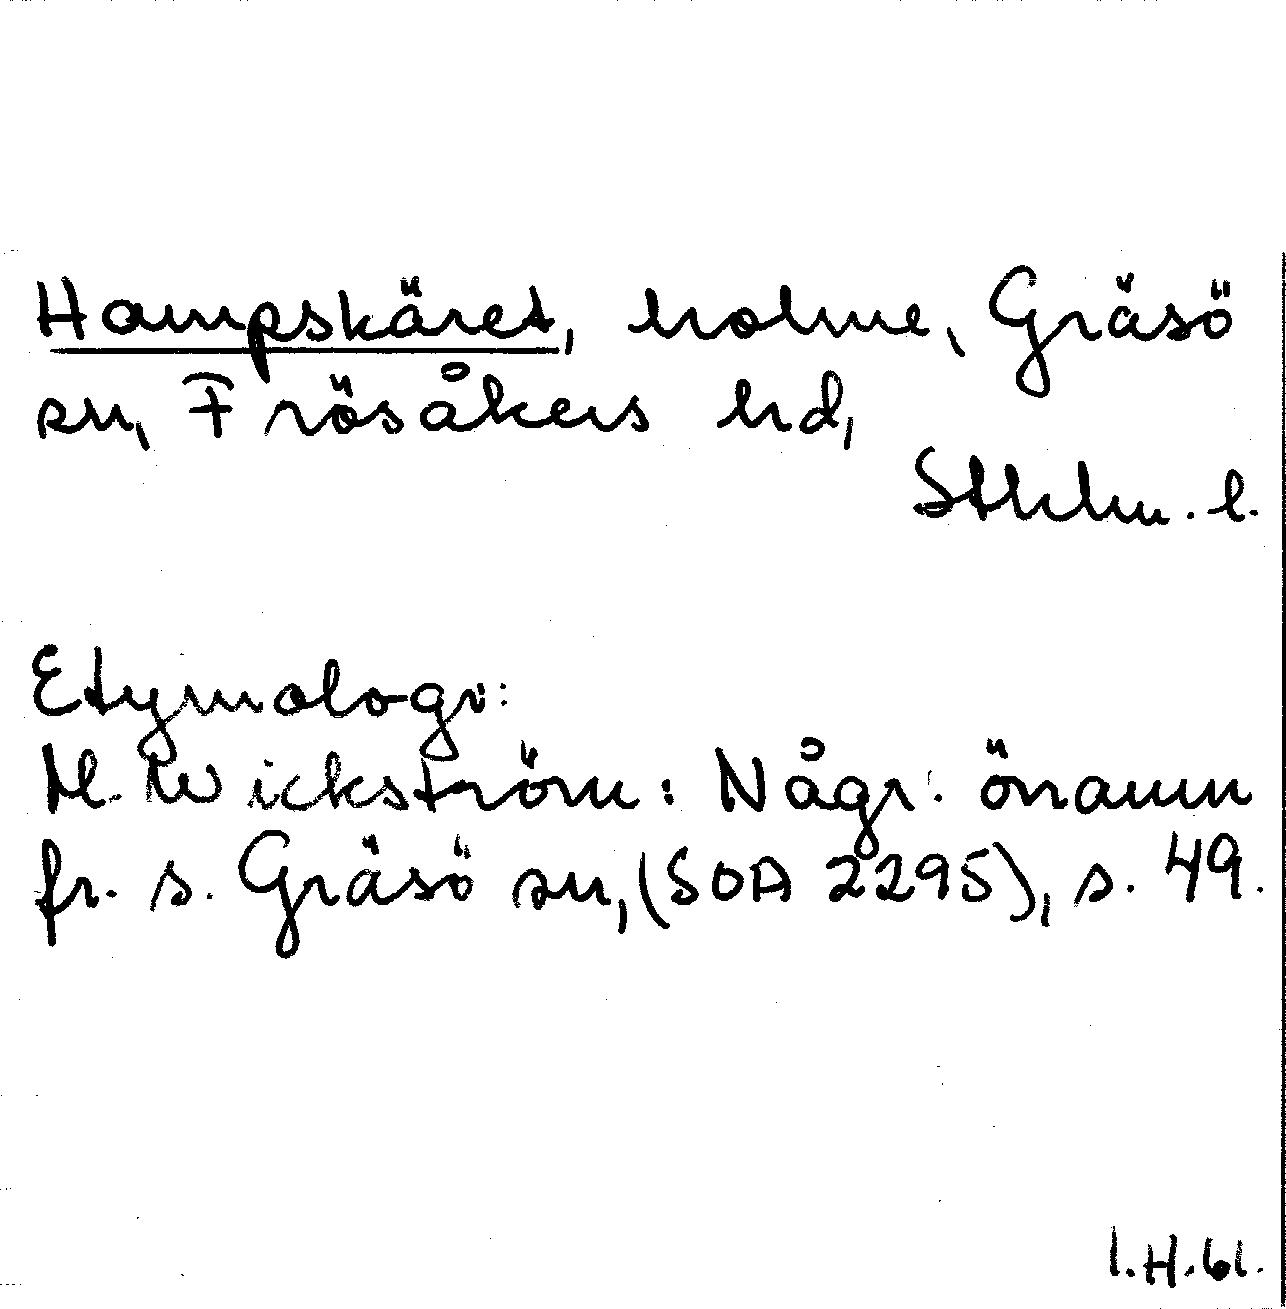 Hampskäret, holme, Gräsö
sn, Frösåkers hd,
Sthlm. l.
Etymologi:
M. Wickström: Någr. önamn
fr. s. Gräsö sn, (SOA 2295), s. 49.
I.H.61.